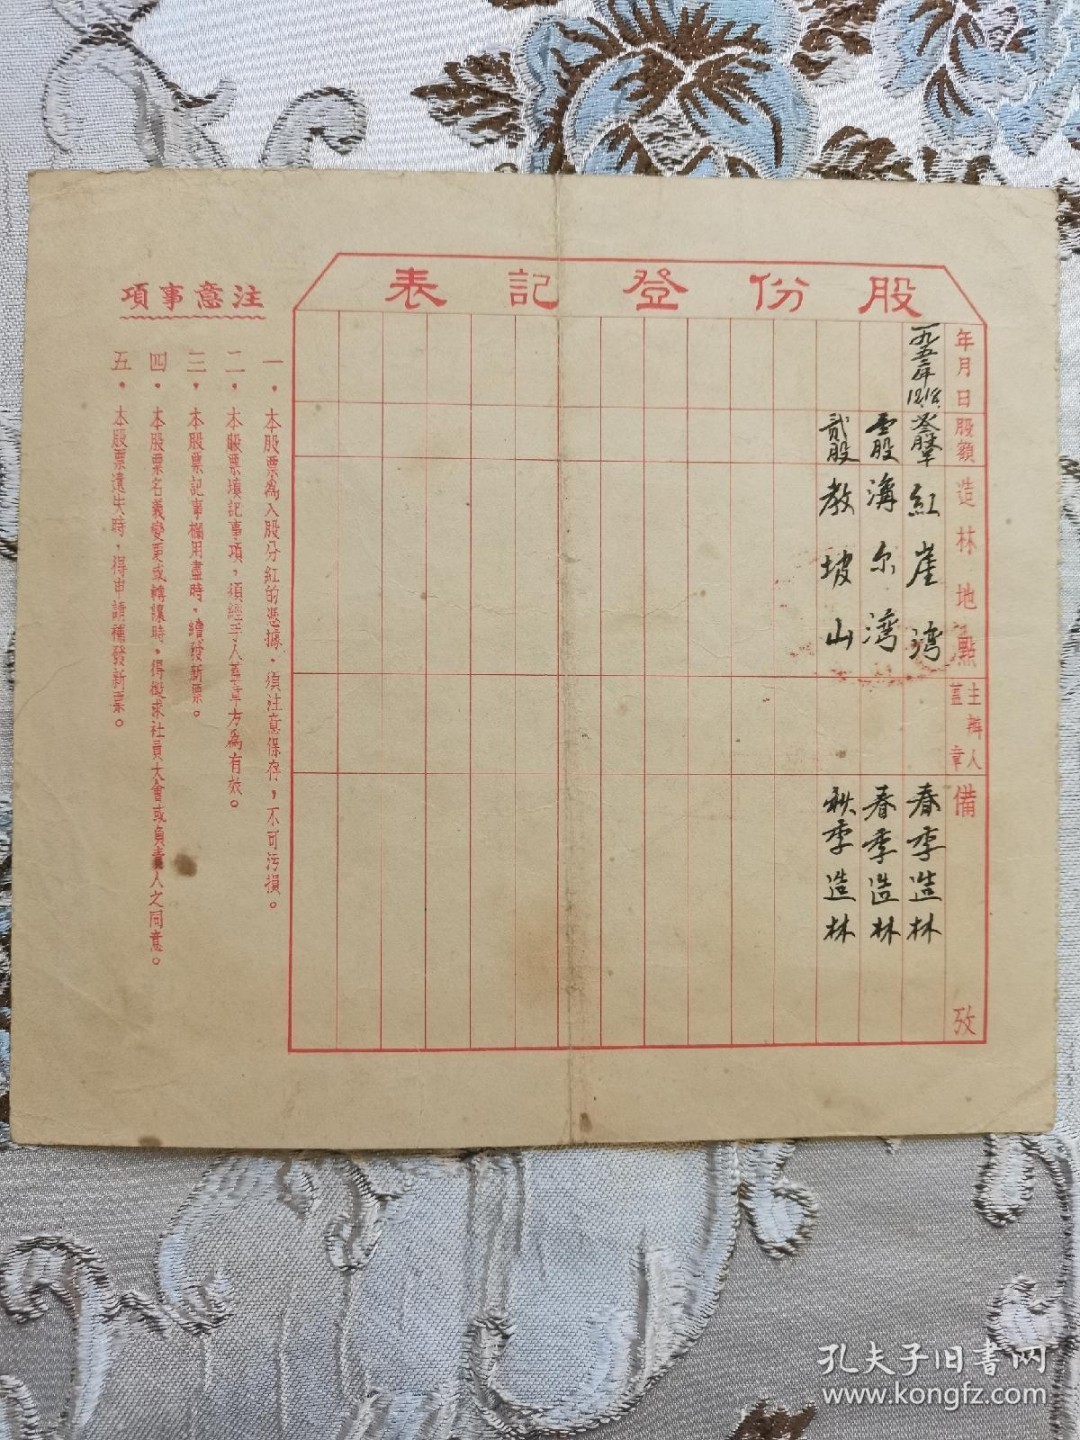 股份登記表
年月日
股額
造林地點
主辦人蓋章
備攷
一九五三年12.18.
紅崖湾
春季造林
股
溝尔湾
春季造林
貳股
教坡山
秋季造林
注意事項
一．本股票為入股分紅的憑據，須注意保存，不可污損。
二．本股票填記事項，須經手人蓋章方為有效。
三．本股票記事欄用盡時，續發新票。
四．本股票名義變更或轉讓時，得徵求社員大會或負責人之同意。
五．本股票遺失時，得申請補發新票。
孔夫子旧書网
www.kongfz.com